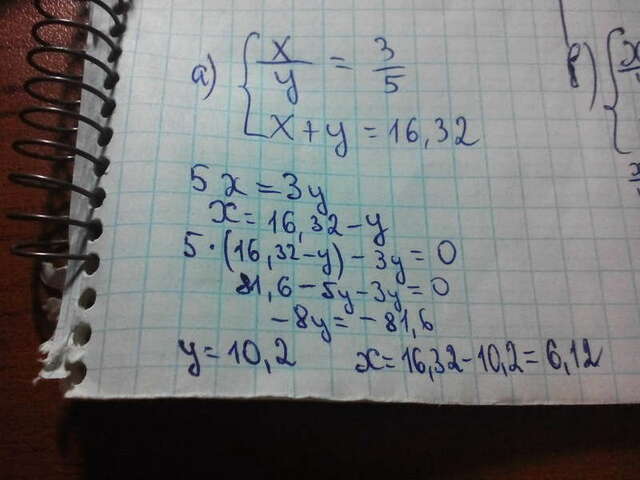 а) { x/y = 3/5
x + y = 16,32
5x = 3y
x = 16,32 - y
5 · (16,32 - y) - 3y = 0
81,6 - 5y - 3y = 0
- 8y = - 81,6
y = 10,2 x = 16,32 - 10,2 = 6,12
в) { x